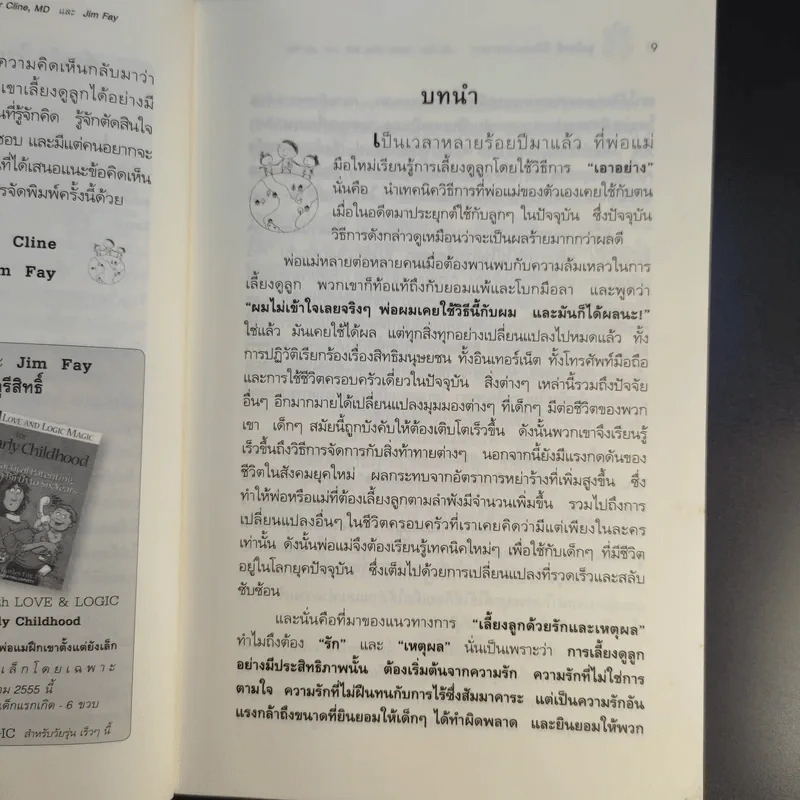 Cline, MD และ Jim Fay
ความคิดเห็นกลับมาว่า
เขาเลี้ยงดูลูกได้อย่างมี
นที่รู้จักคิด รู้จักตัดสินใจ
ชอบ และมีแต่คนอยากจะ
นที่ได้เสนอแนะข้อคิดเห็น
รจัดพิมพ์ครั้งนี้ด้วย
Cline
m Fay
ะ Jim Fay
รีสิทธิ์
LOVE AND LOGIC MAGIC
for
arly Childhood
th LOVE & LOGIC
ly Childhood
พ่อแม่ฝึกเขาตั้งแต่ยังเล็ก
เล็กโดยเฉพาะ
ม 2555 นี้
เด็กแรกเกิด - 6 ขวบ
GIC สำหรับวัยรุ่น เร็วๆ นี้
9
บทนำ
เป็นเวลาหลายร้อยปีมาแล้ว ที่พ่อแม่
มือใหม่เรียนรู้การเลี้ยงดูลูกโดยใช้วิธีการ “เอาอย่าง”
นั่นคือ นำเทคนิควิธีการที่พ่อแม่ของตัวเองเคยใช้กับตน
เมื่อในอดีตมาประยุกต์ใช้กับลูกๆ ในปัจจุบัน ซึ่งปัจจุบัน
วิธีการดังกล่าวดูเหมือนว่าจะเป็นผลร้ายมากกว่าผลดี
พ่อแม่หลายต่อหลายคนเมื่อต้องพานพบกับความล้มเหลวในการ
เลี้ยงดูลูก พวกเขาก็ท้อแท้ถึงกับยอมแพ้และโบกมือลา และพูดว่า
“ผมไม่เข้าใจเลยจริงๆ พ่อผมเคยใช้วิธีนี้กับผม และมันก็ได้ผลนะ!”
ใช่แล้ว มันเคยใช้ได้ผล แต่ทุกสิ่งทุกอย่างเปลี่ยนแปลงไปหมดแล้ว ทั้ง
การปฏิวัติเรียกร้องเรื่องสิทธิมนุษยชน ทั้งอินเทอร์เน็ต ทั้งโทรศัพท์มือถือ
และการใช้ชีวิตครอบครัวเดี่ยวในปัจจุบัน สิ่งต่างๆ เหล่านี้รวมถึงปัจจัย
อื่นๆ อีกมากมายได้เปลี่ยนแปลงมุมมองต่างๆ ที่เด็กๆ มีต่อชีวิตของพวก
เขา เด็กๆ สมัยนี้ถูกบังคับให้ต้องเติบโตเร็วขึ้น ดังนั้นพวกเขาจึงเรียนรู้
เร็วขึ้นถึงวิธีการจัดการกับสิ่งท้าทายต่างๆ นอกจากนี้ยังมีแรงกดดันของ
ชีวิตในสังคมยุคใหม่ ผลกระทบจากอัตราการหย่าร้างที่เพิ่มสูงขึ้น ซึ่ง
ทำให้พ่อหรือแม่ที่ต้องเลี้ยงลูกตามลำพังมีจำนวนเพิ่มขึ้น รวมไปถึงการ
เปลี่ยนแปลงอื่นๆ ในชีวิตครอบครัวที่เราเคยคิดว่ามีแต่เพียงในละคร
เท่านั้น ดังนั้นพ่อแม่จึงต้องเรียนรู้เทคนิคใหม่ๆ เพื่อใช้กับเด็กๆ ที่มีชีวิต
อยู่ในโลกยุคปัจจุบัน ซึ่งเต็มไปด้วยการเปลี่ยนแปลงที่รวดเร็วและสลับ
ซับซ้อน
และนั่นคือที่มาของแนวทางการ “เลี้ยงลูกด้วยรักและเหตุผล”
ทำไมถึงต้อง “รัก” และ “เหตุผล” นั่นเป็นเพราะว่า การเลี้ยงดูลูก
อย่างมีประสิทธิภาพนั้น ต้องเริ่มต้นจากความรัก ความรักที่ไม่ใช่การ
ตามใจ ความรักที่ไม่ฝืนทนกับการไร้ซึ่งสัมมาคาระ แต่เป็นความรักอัน
แรงกล้าถึงขนาดที่ยินยอมให้เด็กๆ ได้ทำผิดพลาด และยินยอมให้พวก